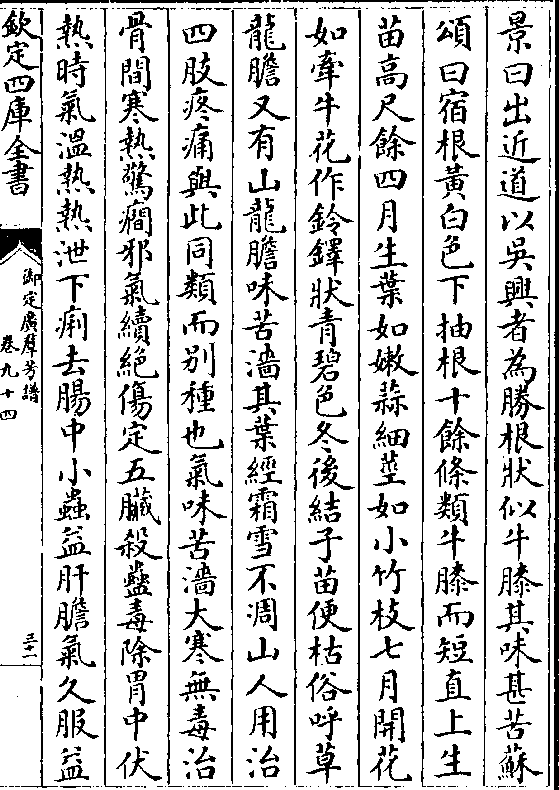 景曰出近道以吳興者為勝根狀似牛膝其味甚苦蘇
頌曰宿根黃白色下抽根十餘條類牛膝而短直上生
苗高尺餘四月生葉如嫩蒜細莖如小竹枝七月開花
如牽牛花作鈴鐸狀青碧色冬後結子苗便枯俗呼草
龍膽又有山龍膽味苦濇其葉經霜雪不凋山人用治
四肢疼痛與此同類而别種也氣味苦濇大寒無毒治
骨間寒熱驚癎邪氣續絶傷定五臟殺蠱毒除胃中伏
熱時氣溫熱熱泄下痢去腸中小蟲益肝膽氣久服益
欽定四庫全書
御定廣羣芳譜
卷九十四
三十一